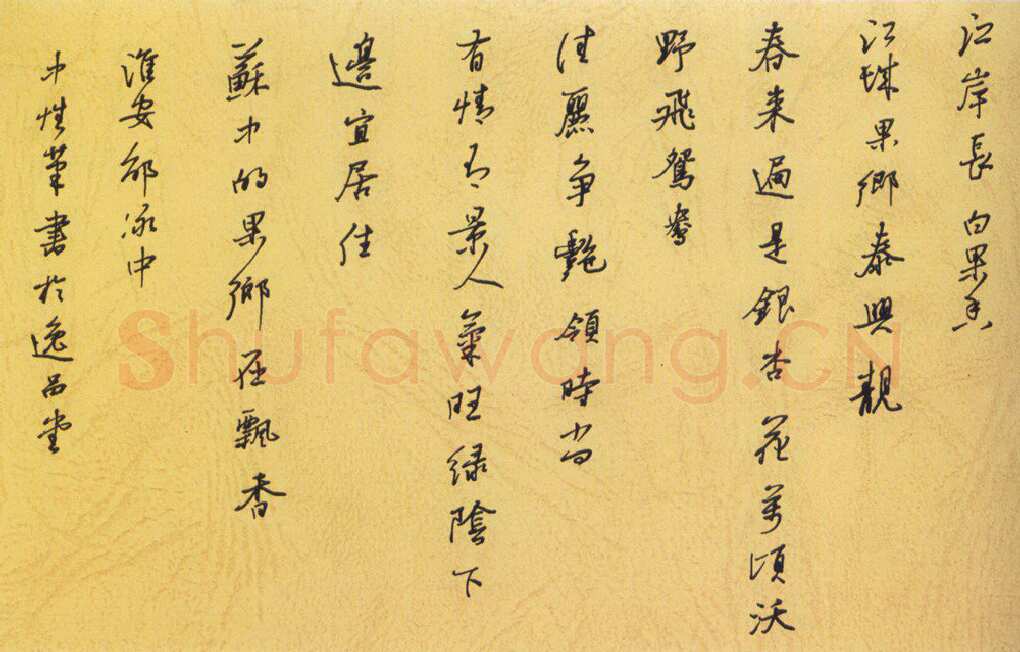 江岸長 白果香
江果鄉泰興靚
春来遍是銀杏花萬頃沃
野飛鴛鴦
佳麗争艷領時尚
有情有景人氣旺绿陰下
邊宜居住
蘇中的果鄉在飄香
淮安中
中性筆書於逸品堂
Shufawang.CN